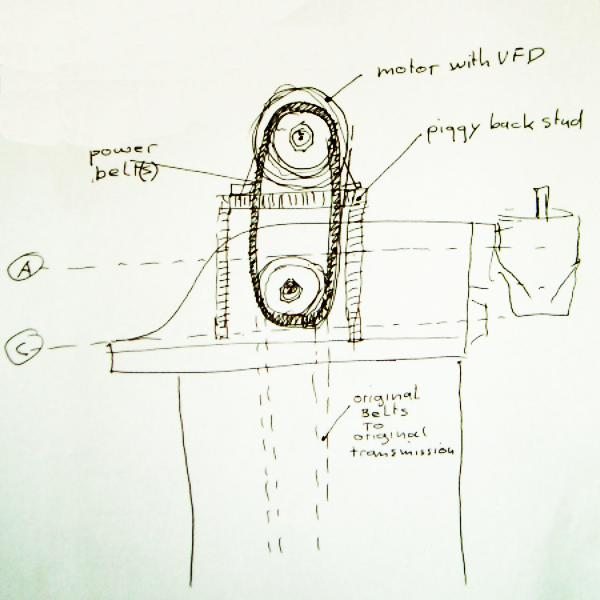 motor with VFD
piggy back stud
power
belt(s)
A
C
original
Belts
To
original
transmission